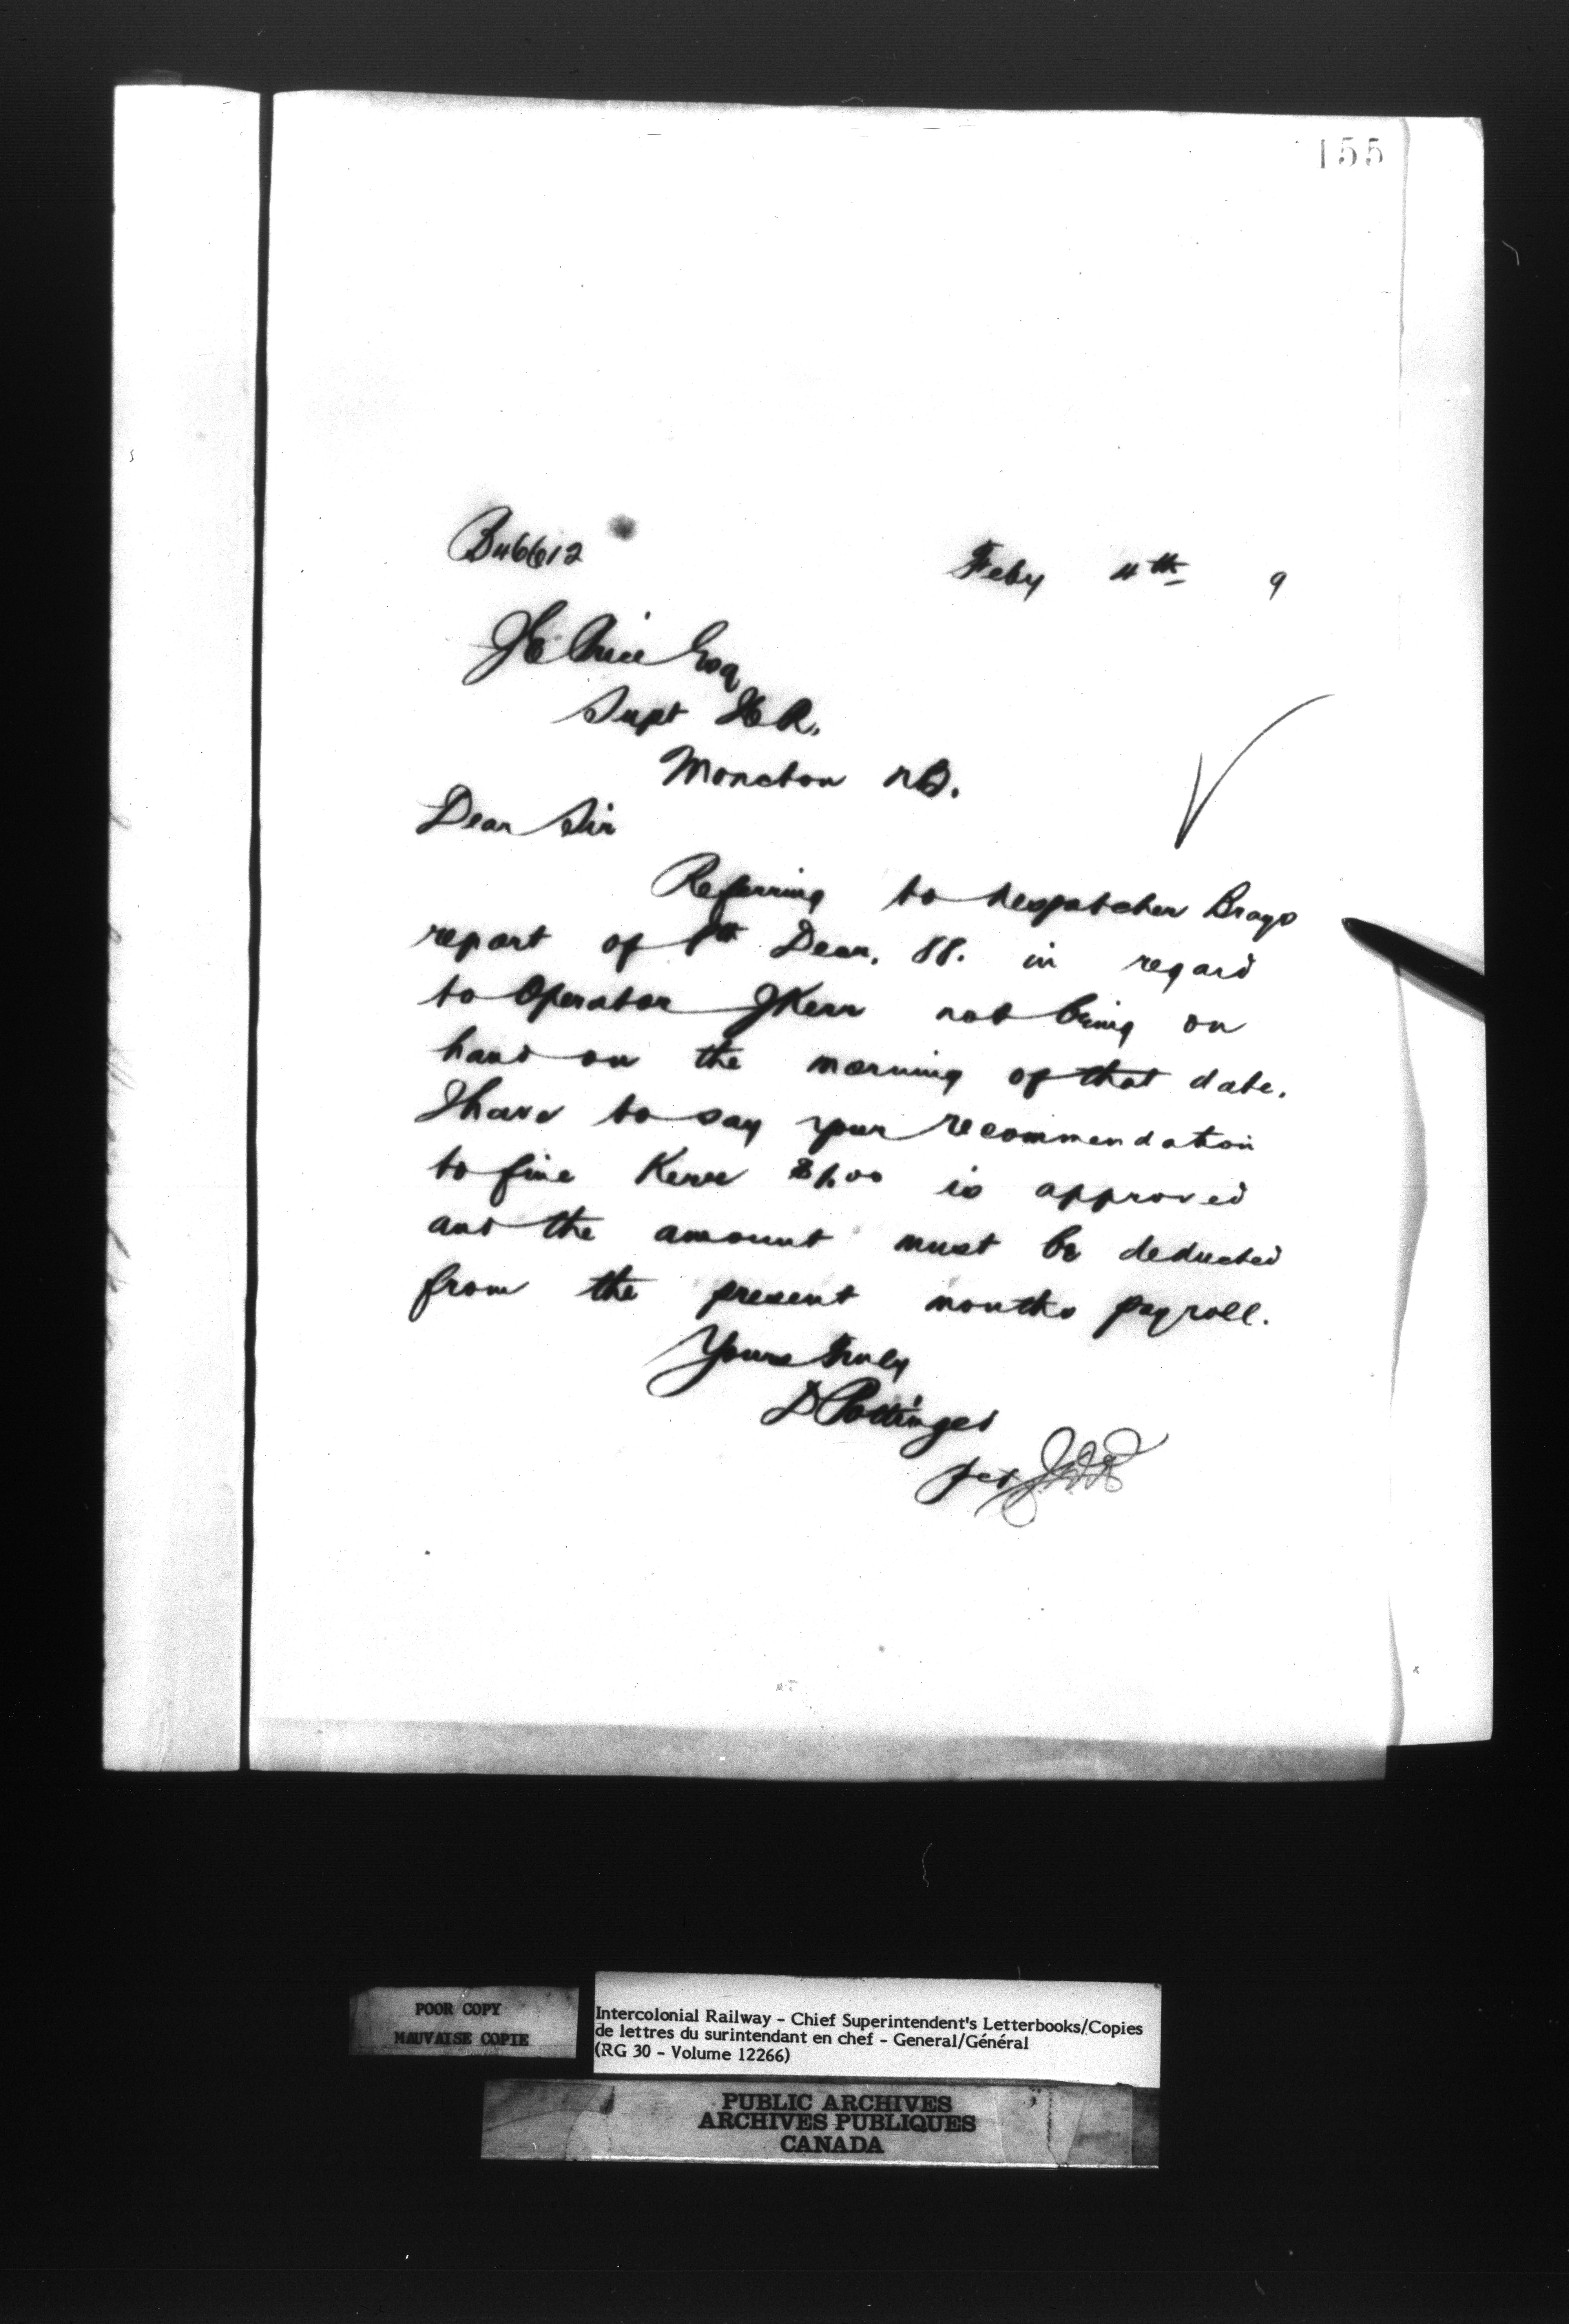 155
B46612
Feby 4th 9
J E Price Esq
Supt I C R.
Moncton N B.
Dear Sir
Referring to despatcher Brays
report of 8th Decr. 88. in regard
to Operator J Kerr not being on
hand on the morning of that date.
I have to say your recommendation
to fine Kerr $1.00 is approved
and the amount must be deducted
from the present months payroll.
Yours truly
D Pottinger
per
POOR COPY
MAUVAISE COPIE
Intercolonial Railway - Chief Superintendent's Letterbooks/Copies
de lettres du surintendant en chef - General/Général
(RG 30 - Volume 12266)
PUBLIC ARCHIVES
ARCHIVES PUBLIQUES
CANADA